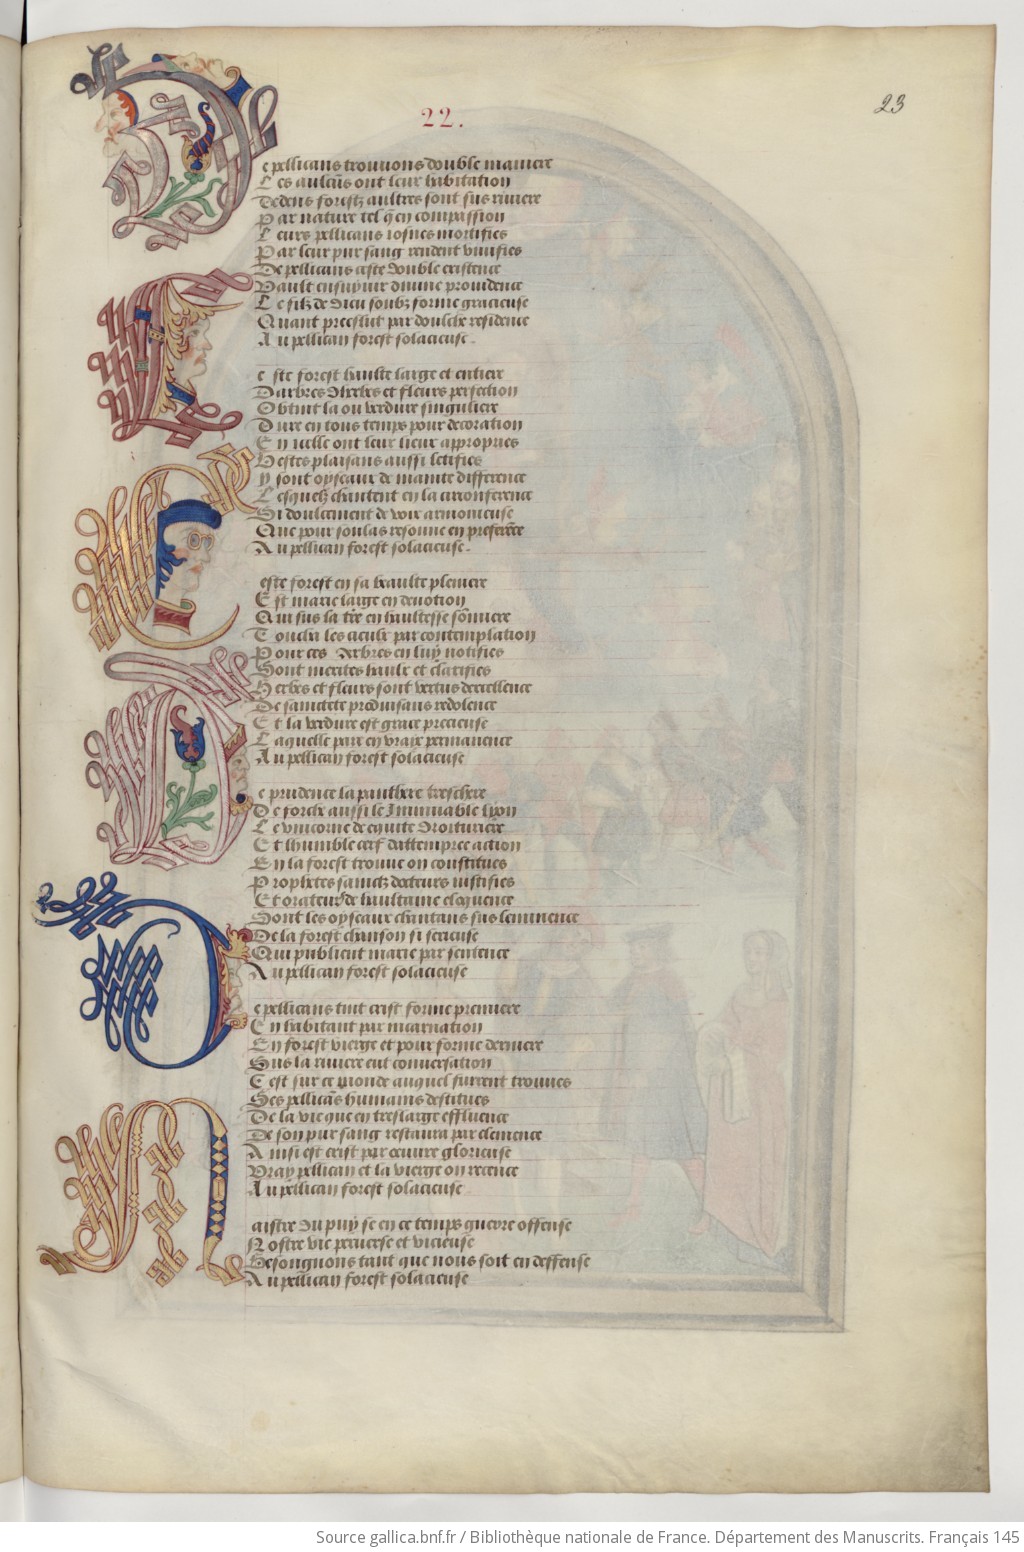 23
22.
De pellicans trouvons double maniere
Les aulcũs ont leur habitation
Dedens forestz aultres sont sus riviere
Par nature tel q̃ en compassion
Leurs pellicans iosnes mortifies
Par leur pur sang rendent vivifies
De pellicans ceste double existence
Vault ensuyvir divine providence
Le filz de dieu soubz forme gracieuse
Quant preeslut par doulche residence
Au pellican forest solacieuse.
Ceste forest haulte large et entiere
Darbres dherbes et fleurs perfection
Obtint la ou verdure singuliere
Dure en tous temps pour decoration
En icelle ont leur lieux appropries
Bestes plaisans aussi letifies
Y sont oyseaux de mainte difference
Lesquelz chantent en la circonference
Si doulcement de voix armonieuse
Que pour soulas resonne en preferẽce
Au pellican forest solacieuse.
Ceste forest en sa beaulte pleniere
Est marie large en devotion
Qui sus la tr̃e en haultesse sõmiere
Toucha les cieulx par contemplation
Pour ces Arbres en luy notifies
Sont merites haulx et clarifies
Herbes et fleurs sont vertus dexcellence
De sainctete produisans redolence
Et la verdure est grace precieuse
Laquelle pare en vraye permanence
Au pellican forest solacieuse
De prudence la panthere treschere
De force aussi le Inmuable lyon
Le unicorne de equite droituriere
Et lhumble cerf dattempree action
En la forest trouve on constitues
Prophetes sainctz docteurs iustifies
Et orateurs de haultaine eloquence
Sont les oyseaux chantans sus leminence
De la forest chanson si serieuse
Qui publient marie par sentence
Au pellican forest solacieuse
De pellicans tint crist forme premiere
En habitant par incarnation
En forest vierge et pour forme derniere
Sus la riviere eut conversation
Cest sur ce monde auquel furent trouves
Ses pellicãs humains destitues
De la vie que en treslarge effluence
De son pur sang restaura par clemence
Ainsi est crist par œuvre glorieuse
Vray pellican et la vierge on recence
Au pellican forest solacieuse
Maistre du puy se en ce temps guerre offense
Nostre vie perverse et vicieuse
Besongnons tant que nous soit en deffense
Au pellican forest solacieuse
Source gallica.bnf.fr / Bibliothèque nationale de France. Département des Manuscrits. Français 145